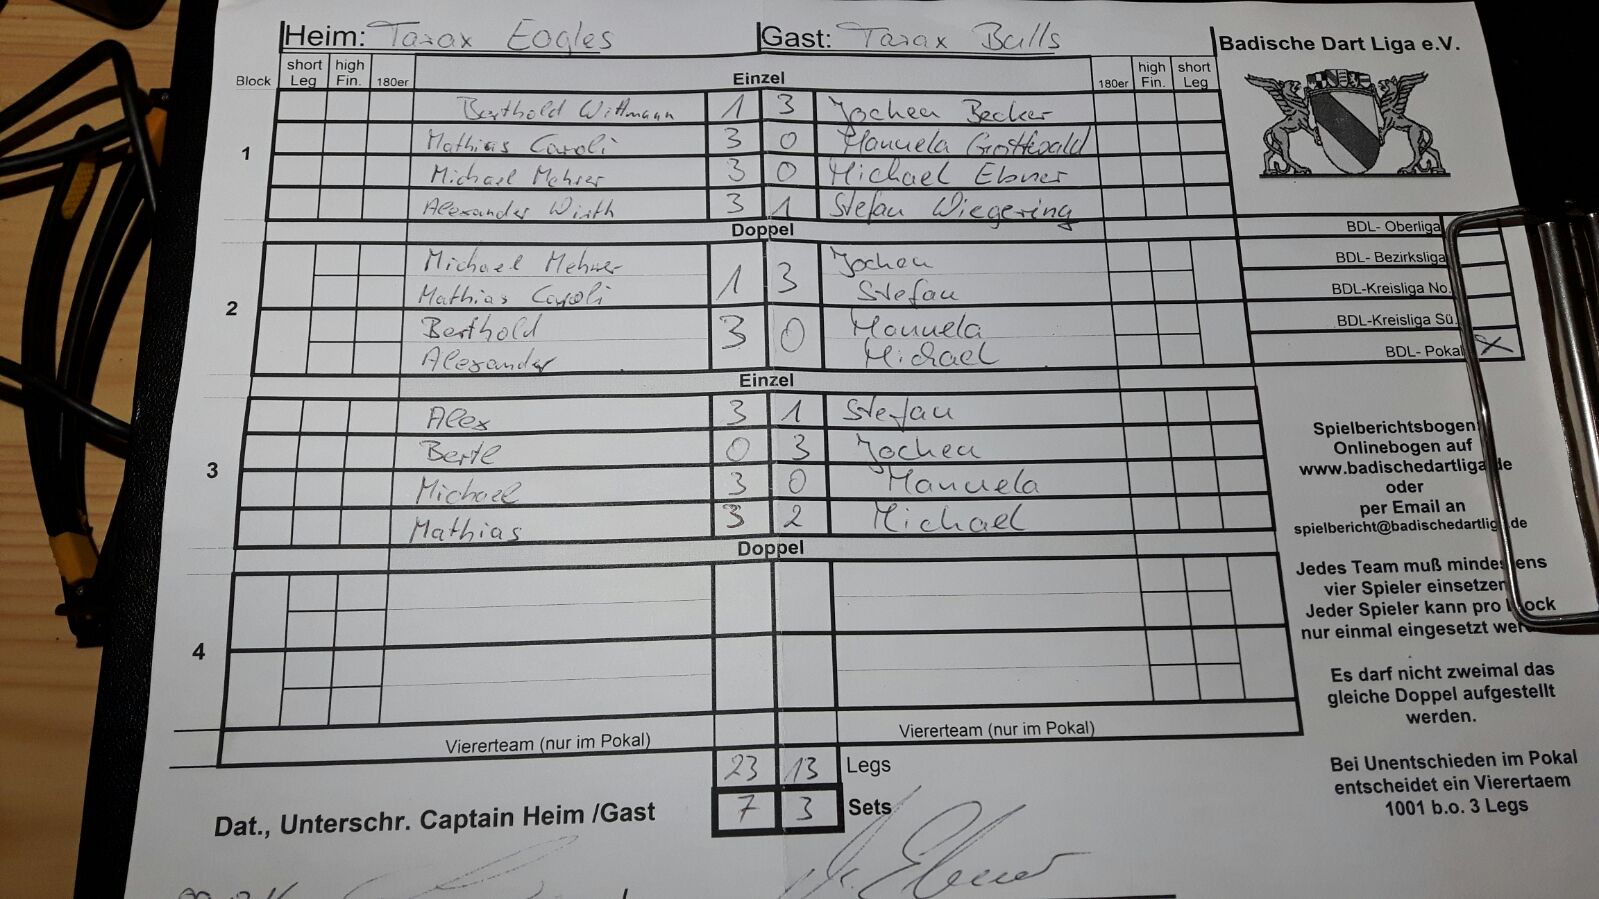 Heim: Tarax Eagles Gast: Tarax Bulls
Badische Dart Liga e.V.
Block short Leg high Fin. 180er Einzel 180er high Fin. short Leg
1
Berthold Wittmann 1 3 Jochen Becker
Mathias Caroli 3 0 Manuela Grottwald
Michael Mehrer 3 0 Michael Ebner
Alexander Wirth 3 1 Stefan Wiegering
Doppel
2
Michael Mehrer 1 3 Jochen
Mathias Caroli Stefan
Berthold 3 0 Manuela
Alexander Michael
Einzel
3
Alex 3 1 Stefan
Bertl 0 3 Jochen
Michael 3 0 Manuela
Mathias 3 2 Michael
Doppel
4
Viererteam (nur im Pokal) Viererteam (nur im Pokal)
23 13 Legs
7 3 Sets
Dat., Unterschr. Captain Heim /Gast
M. Ebner
BDL- Oberliga
BDL- Bezirksliga
BDL-Kreisliga No.
BDL-Kreisliga Sü.
BDL- Pokal X
Spielberichtsbogen
Onlinebogen auf
www.badischedartliga.de
oder
per Email an
spielbericht@badischedartliga.de
Jedes Team muß mindestens
vier Spieler einsetzen
Jeder Spieler kann pro Block
nur einmal eingesetzt werden
Es darf nicht zweimal das
gleiche Doppel aufgestellt
werden.
Bei Unentschieden im Pokal
entscheidet ein Vierertaem
1001 b.o. 3 Legs